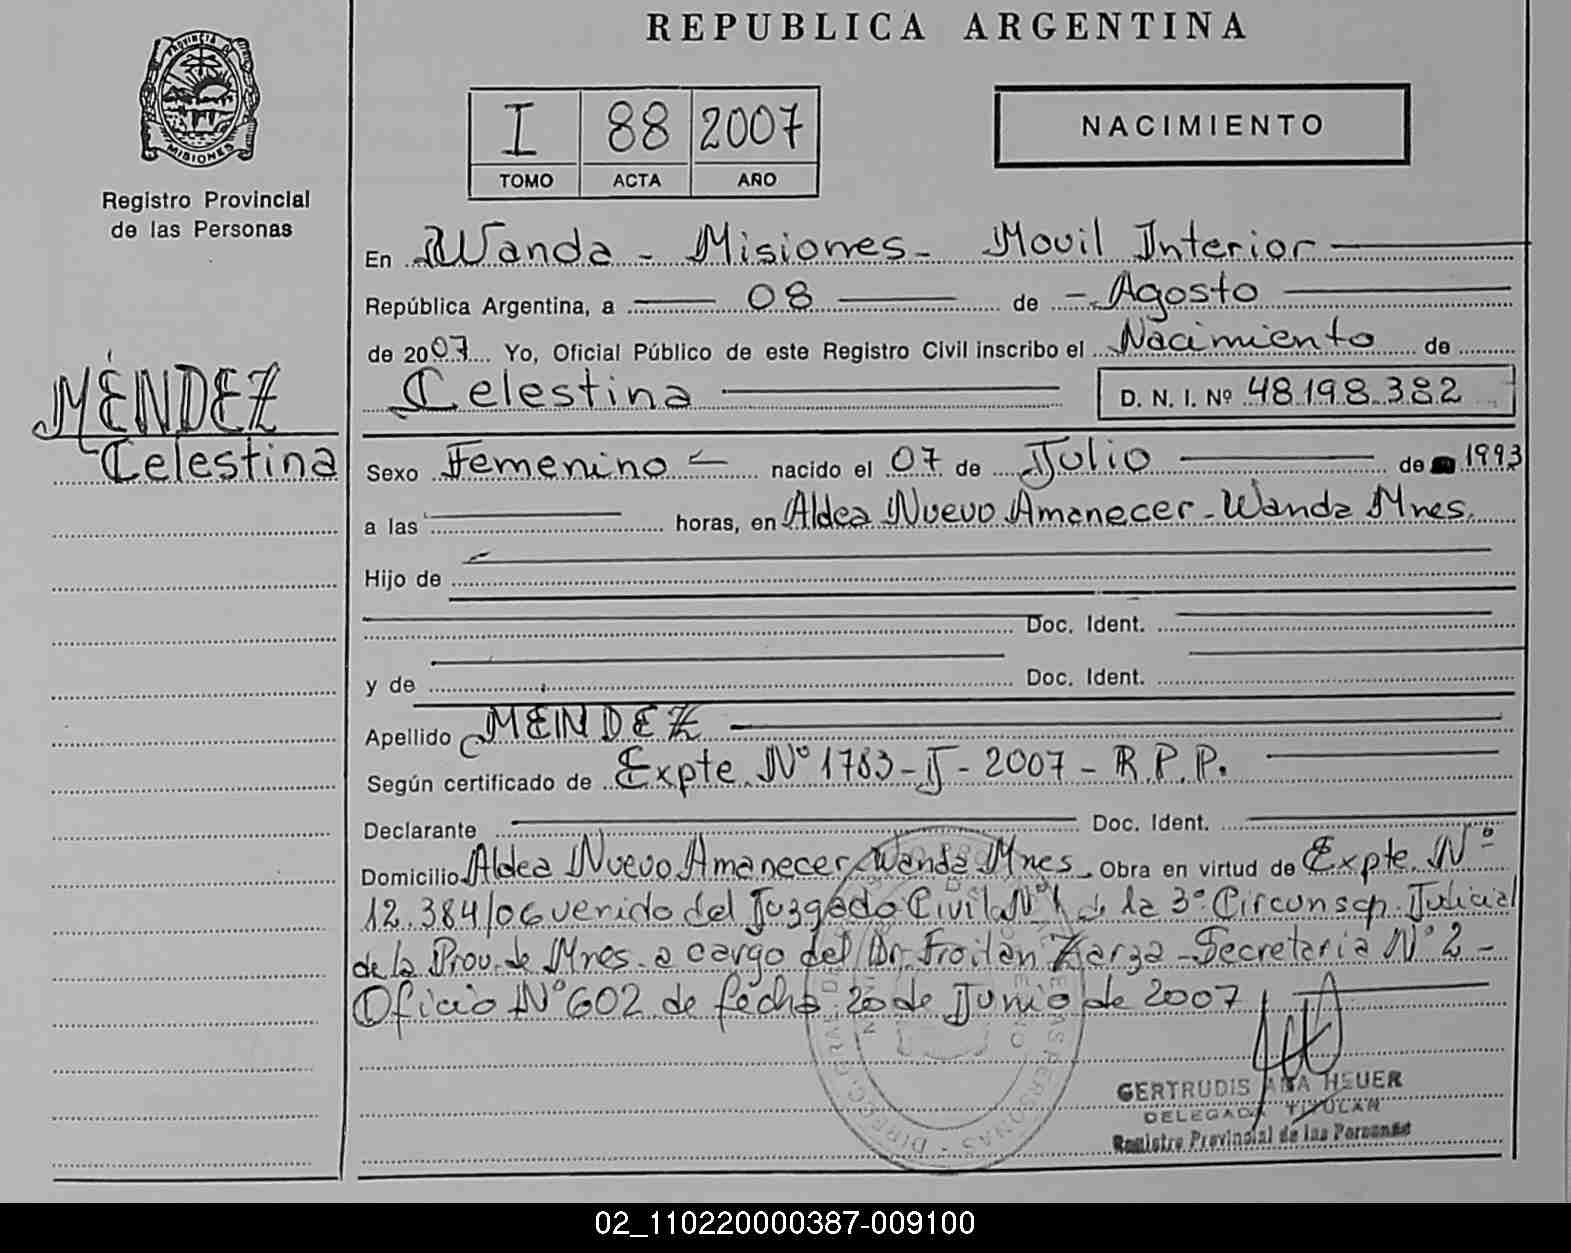 REPUBLICA ARGENTINA
PROVINCIA D
MISIONES
Registro Provincial
de las Personas
I 88 2007
TOMO ACTA AÑO
NACIMIENTO
En Wanda - Misiones - Movil Interior
República Argentina, a 08 de Agosto
de 2007 Yo, Oficial Público de este Registro Civil inscribo el Nacimiento de
Celestina D. N. I. Nº 48.198.382
MÉNDEZ
Celestina
Sexo Femenino nacido el 07 de Julio de 1993
a las horas, en Aldea Nuevo Amanecer - Wanda Mnes.
Hijo de
Doc. Ident.
y de Doc. Ident.
Apellido MENDEZ
Según certificado de Expte. Nº 1783 - J - 2007 - R.P.P.
Declarante Doc. Ident.
Domicilio Aldea Nuevo Amanecer, Wanda Mnes. Obra en virtud de Expte. Nº
12.384/06 venido del Juzgado Civil Nº 1 de la 3º Circunscp. Judicial
de la Prov. de Mnes. a cargo del Dr. Froilán Zarza - Secretaria Nº 2 -
Oficio Nº 602 de fecha 20 de Junio de 2007
GERTRUDIS ANA HEUER
DELEGADA TITULAR
Registro Provincial de las Personas
02_110220000387-009100